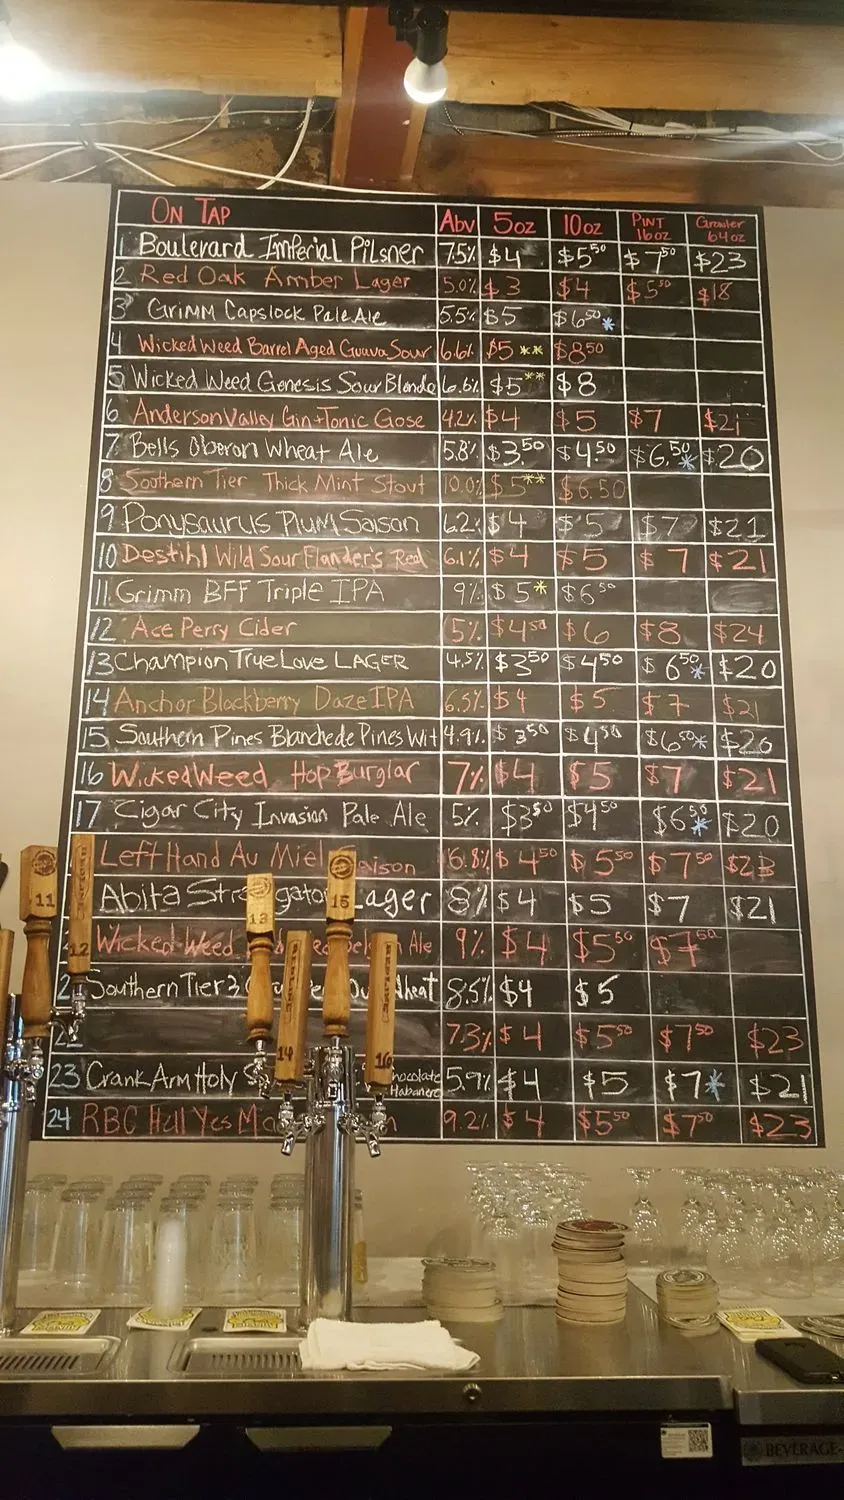 ON TAP Abv 5oz 10oz PINT 16oz Growler 64oz
1 Boulevard Imperial Pilsner 7.5% $4 $5.50 $7.50 $23
2 Red Oak Amber Lager 5.0% $3 $4 $5.50 $18
3 Grimm Capslock Pale Ale 5.5% $5 $6.50 *
4 Wicked Weed Barrel Aged Guava Sour 6.6% $5 ** $8.50
5 Wicked Weed Genesis Sour Blonde 6.6% $5 ** $8
6 Anderson Valley Gin + Tonic Gose 4.2% $4 $5 $7 $21
7 Bells Oberon Wheat Ale 5.8% $3.50 $4.50 $6.50 * $20
8 Southern Tier Thick Mint Stout 10.0% $5 ** $6.50
9 Ponysaurus Plum Saison 6.2% $4 $5 $7 $21
10 Destihl Wild Sour Flander's Red 6.1% $4 $5 $7 $21
11 Grimm BFF Triple IPA 9% $5 * $6.50
12 Ace Perry Cider 5% $4.50 $6 $8 $24
13 Champion True Love LAGER 4.5% $3.50 $4.50 $6.50 * $20
14 Anchor Blackberry Daze IPA 6.5% $4 $5 $7 $21
15 Southern Pines Blanchede Pines Wit 4.9% $3.50 $4.50 $6.50 * $20
16 Wicked Weed Hop Burglar 7% $4 $5 $7 $21
17 Cigar City Invasion Pale Ale 5% $3.50 $4.50 $6.50 * $20
Left Hand Au Miel Saison 6.8% $4.50 $5.50 $7.50 $23
Abita Lager 8% $4 $5 $7 $21
Wicked Weed Ale 9% $4 $5.50 $7.50
Southern Tier 8.5% $4 $5
7.3% $4 $5.50 $7.50 $23
23 Crank Arm Holy Chocolate Habanero 5.9% $4 $5 $7 * $21
24 RBC Hell Yes 9.2% $4 $5.50 $7.50 $23
11
12
13
14
15
16
BEVERAGE-